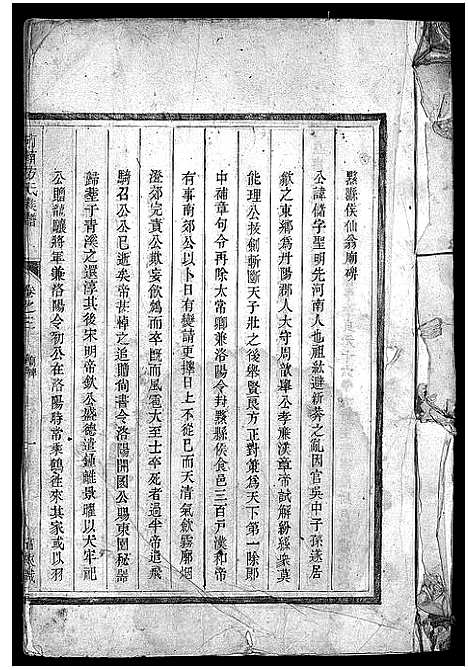 黟縣侯仙翁廟碑
公諱儲字聖明先河南人也祖紘避新莽之亂因官吳中子孫遂居
歙之東鄉為丹陽郡人大守周歆舉公孝廉漢章帝試解紛經衆莫
能理公拔劍斬斷天子壯之後舉賢良方正對策為天下第一除郎
中補章句令再除太常卿兼洛陽令封黟縣侯食邑三百戶漢和帝
有事南郊公以卜日有變請更擇日上不從已而天清氣歛霧廓烟
澄郊完責公欺妄飲鴆而卒既而風雹大至士卒死者過半帝遣飛
騎召公公已逝矣帝甚悼之追贈尚書令洛陽開國公賜東園秘器
歸塟于青溪之還淳其後宋明帝欽公盛德遣鍾離景曜以大牢祀
公贈龍驤將軍兼洛陽令初公在洛陽時常乘鶴往來其家或以羽
方氏族譜
卷之三
廟碑
一